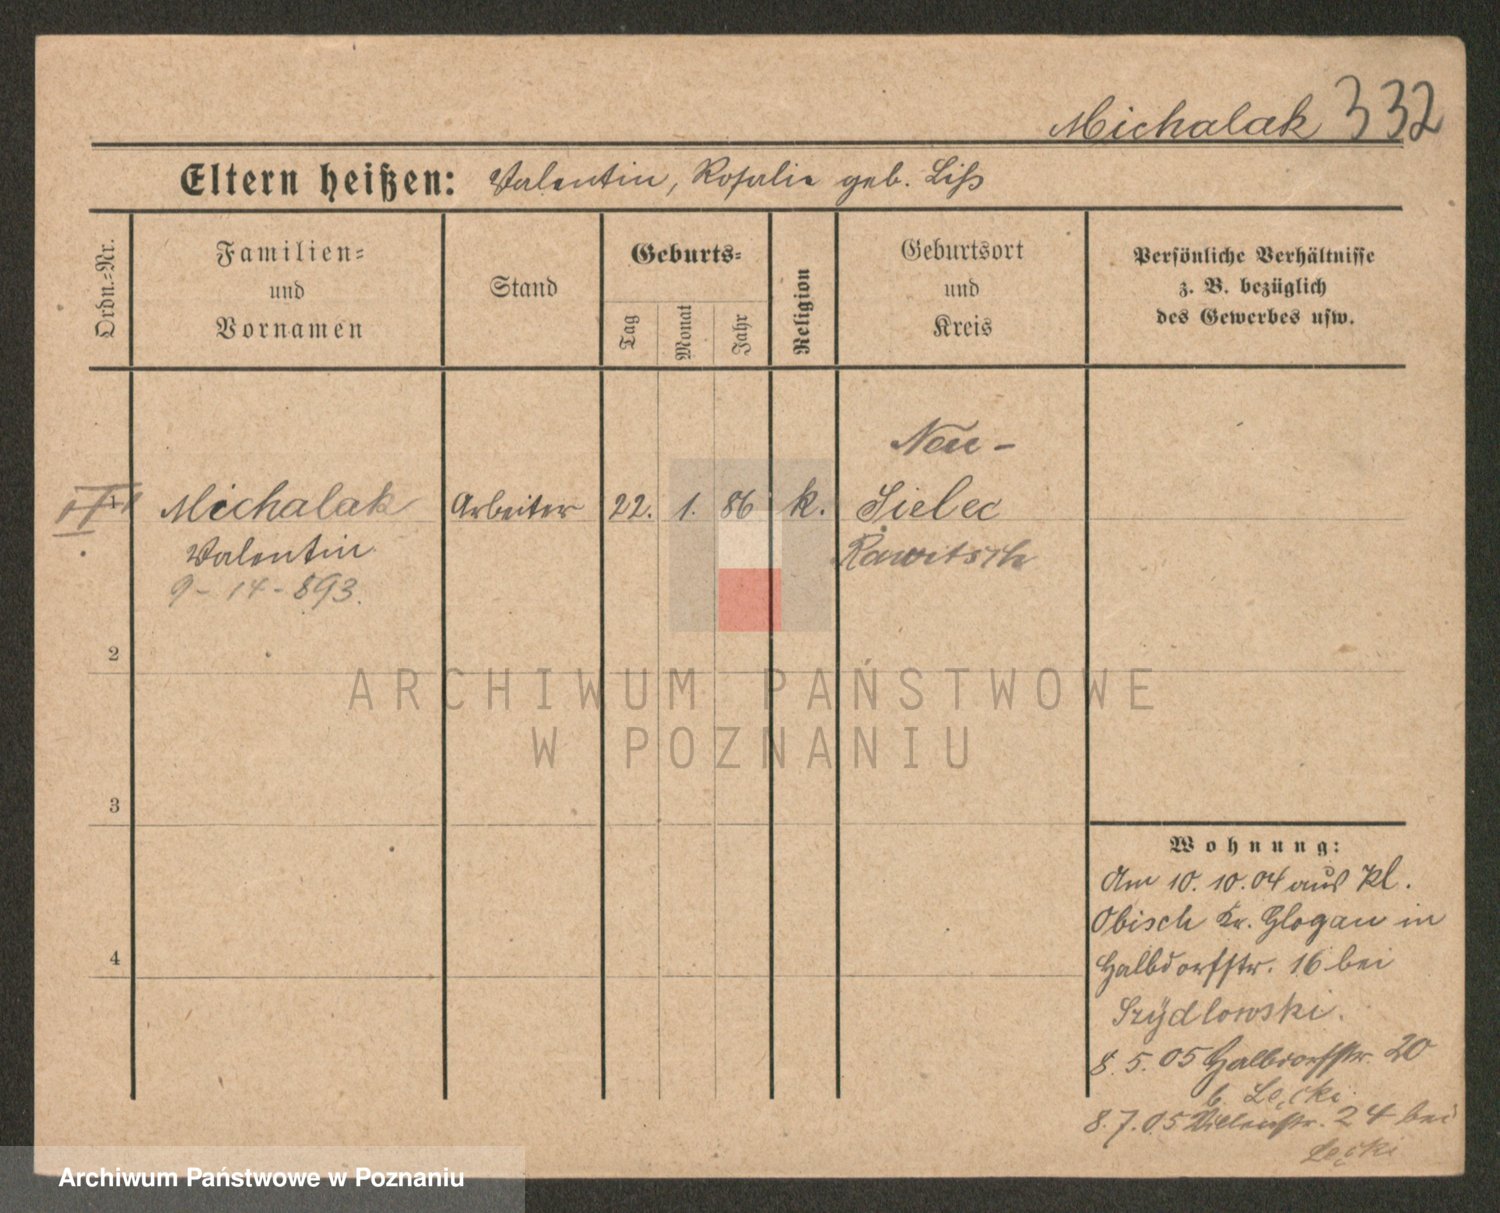 Michalak 332
Eltern heißen: Valentin, Rosalie geb. Liss
Ordn.=Nr.
Familien=
und
Vornamen
Stand
Geburts=
Tag
Monat
Jahr
Religion
Geburtsort
und
Kreis
Persönliche Verhältnisse
z. B. bezüglich
des Gewerbes usw.
Neu-
1 Michalak Arbeiter 22. 1. 86 k. Sielec
Valentin Rawitsch
9-14-893.
2
ARCHIWUM PAŃSTWOWE
W POZNANIU
3
Wohnung:
Am 10. 10. 04 aus Kl.
Obisch Kr. Glogau in
4
Halbdorfstr. 16 bei
Szÿdlowski.
8. 5. 05 Halbdorfstr. 20
b. Lęcki
8. 7. 05 24 bei
Lęcki
Archiwum Państwowe w Poznaniu